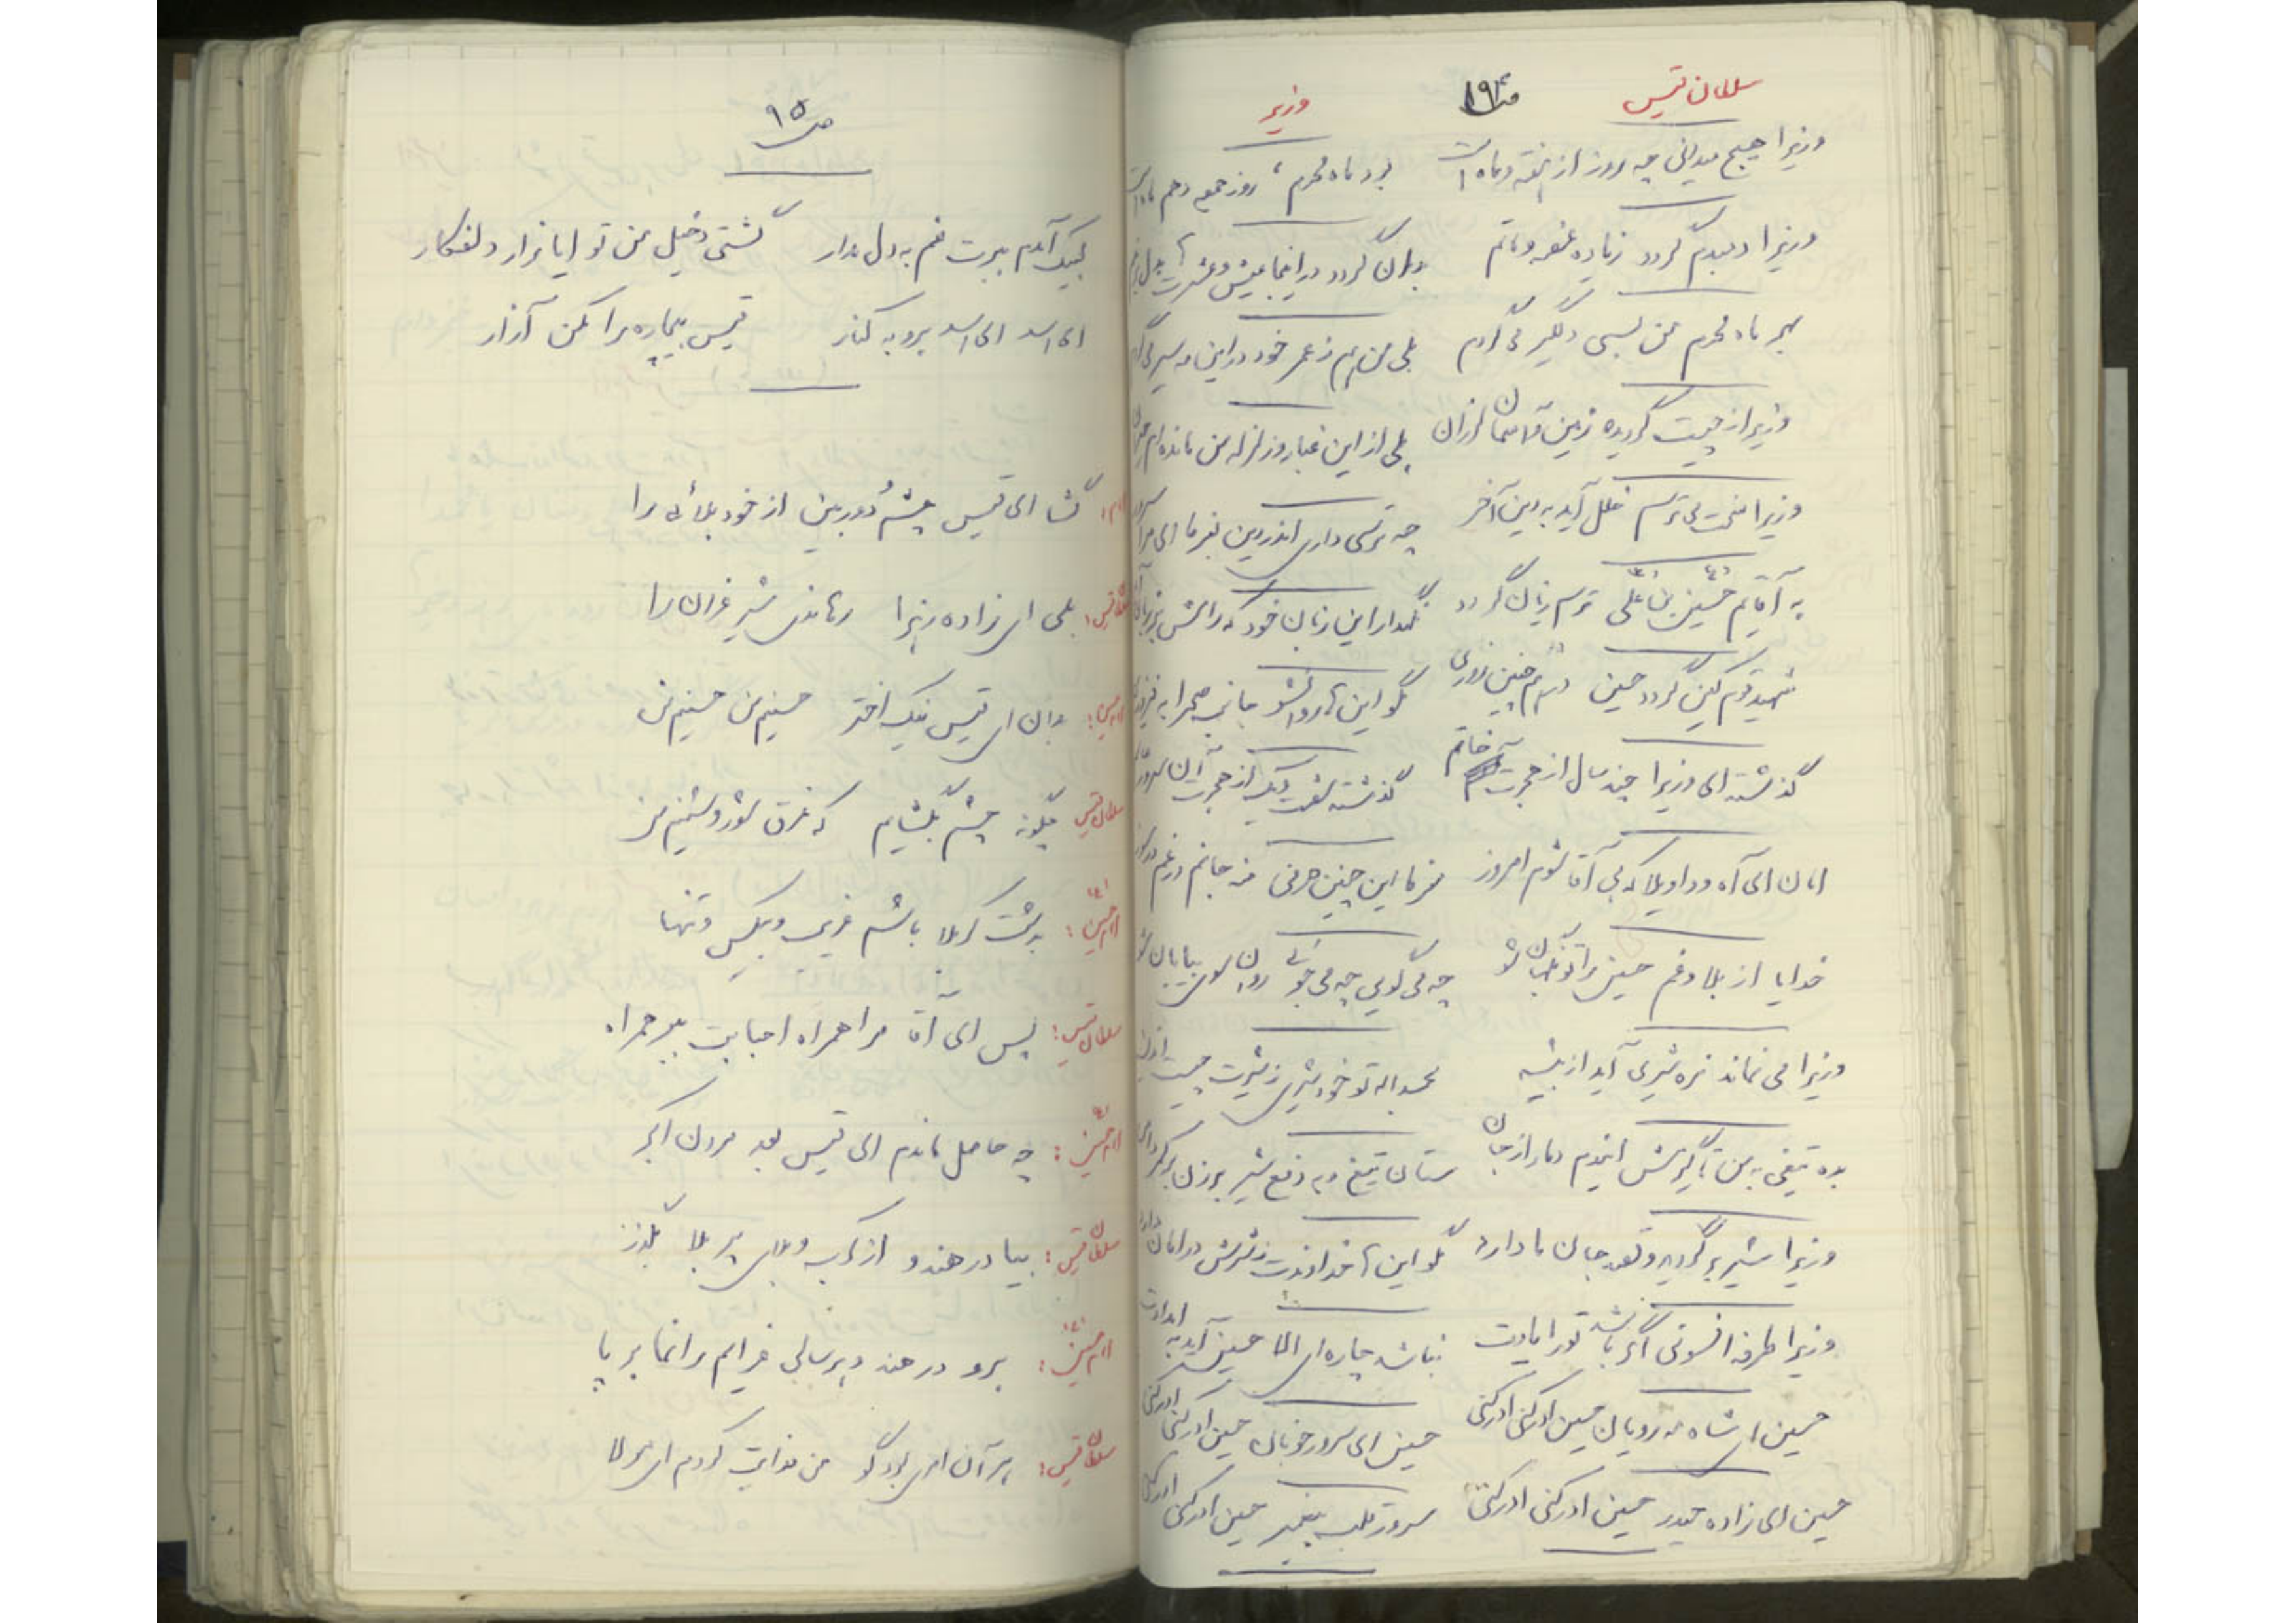 سلطان قیس ص۱۹۴ وزیر
وزیرا هیچ میدانی چه روز از هفته و ماه است بود ماه محرم، روز جمعه دهم ماه است
وزیرا دمبدم گردد زیاده غصه و ماتم بدان گردد در اینجا عیش و عشرت
بهر ماه محرم من بسی دلگیر می‌گردم بلی من هم ز عمر خود در این مه سیر می‌گردم
وزیرا از چیست گردیده زمین و آسمان لرزان بلی از این غبار و زلزله من مانده‌ام حیران
وزیرا سخت می‌ترسم خلل آید به دین آخر چه ترسی داری اندر دین بفرما ای مرا سرور
به آقایم حسین بن علی ترسم زیان گردد نگهدار این زبان خود که رازش
شهید قوم کین گردد حسین مگو این‌ها روان شو جانب صحرا به
گذشته ای وزیرا چند سال از هجرت خاتم گذشته شصت و یک از هجرت آن سرور
امان ای آه و واویلا که بی آقا شوم امروز مفرما این چنین حرفی
خدایا از بلا و غم حسین را تو نگهبان شو چه می‌گویی چه می‌جوئی روان سوی بیابان شو
وزیرا می نماند نره شیری آید از بیشه بحمداله تو خود شیری ز شیرت چیست اندیشه
بده تیغی به من تا گیرمش اندم دمار از جان ستان تیغ و به دفع شیر
وزیرا شیر برگردید و قصد جان ما دارد مگو این‌ها خداوندت ز شرش در امان دارد
وزیرا طرفه افسونی اگر باشد تو را یادت نباشد چاره‌ای الا حسین آید به امدادت
حسین ای شاه مه رویان حسین ادرکنی ادرکنی حسین ای سرور خوبان حسین ادرکنی ادرکنی
حسین ای زاده حیدر حسین ادرکنی ادرکنی سرور قلب پیغمبر حسین ادرکنی ادرکنی
ص۹۵
لبیک آمدم ببرت غم به دل مدار گشتی دخیل من تو ایا زار و دلفکار
ای اسد ای اسد برو به کنار قیس بیچاره را مکن آزار
امام: گشا ای قیس چشم دوربین از خود بلائی را
سلطان قیس: بلی ای زاده زهرا رهاندی شیر غران را
امام حسین: بدان ای قیس نیک اختر حسینم من حسینم من
سلطان قیس چگونه چشم بگشایم که غرق شور و شینم من
امام حسین: بدشت کربلا باشم غریب و بیکس و تنها
سلطان قیس: پس ای آقا مرا همراه احبابت ببر همراه
امام حسین: چه حاصل ماندم ای قیس بعد مردن اکبر
سلطان قیس: بیا در هند و از کرب و بلای پر بلا بگذر
امام حسین: برو در هند و هر سالی عزایم را نما بر پا
سلطان قیس: بهر آن امری بود گو من فدایت گردم ای مولا